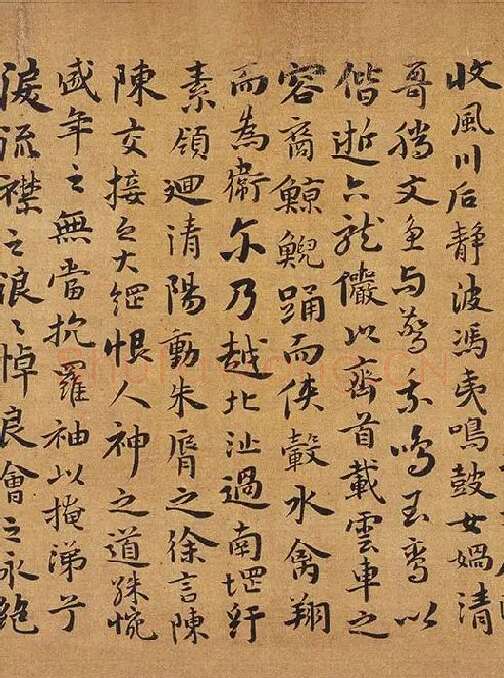 收風川后靜波馮夷鳴鼓女媧清
哥騰文魚与驚乘鳴玉鸞以
偕逝六龍儼以齊首載雲車之
容裔鯨鯢踊而俠轂水禽翔
而為衛尓乃越北沚過南堽紆
素領迴清陽動朱脣之徐言陳
陳交接之大綱恨人神之道殊惋
盛年之無當抗羅袖以掩涕兮
淚流襟之浪〻悼良會之永絕